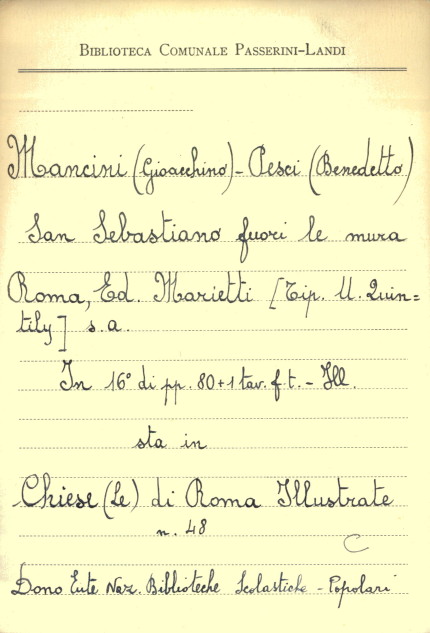 BIBLIOTECA COMUNALE PASSERINI-LANDI
Mancini (Gioacchino) - Pesci (Benedetto)
San Sebastiano fuori le mura
Roma, Ed. Marietti [Tip. U. Quin=
tily] s.a.
In 16° di pp. 80+1 tav. f. t. - Ill.
sta in
Chiese (Le) di Roma Illustrate
n. 48
C
Dono Ente Naz. Biblioteche Scolastiche - Popolari